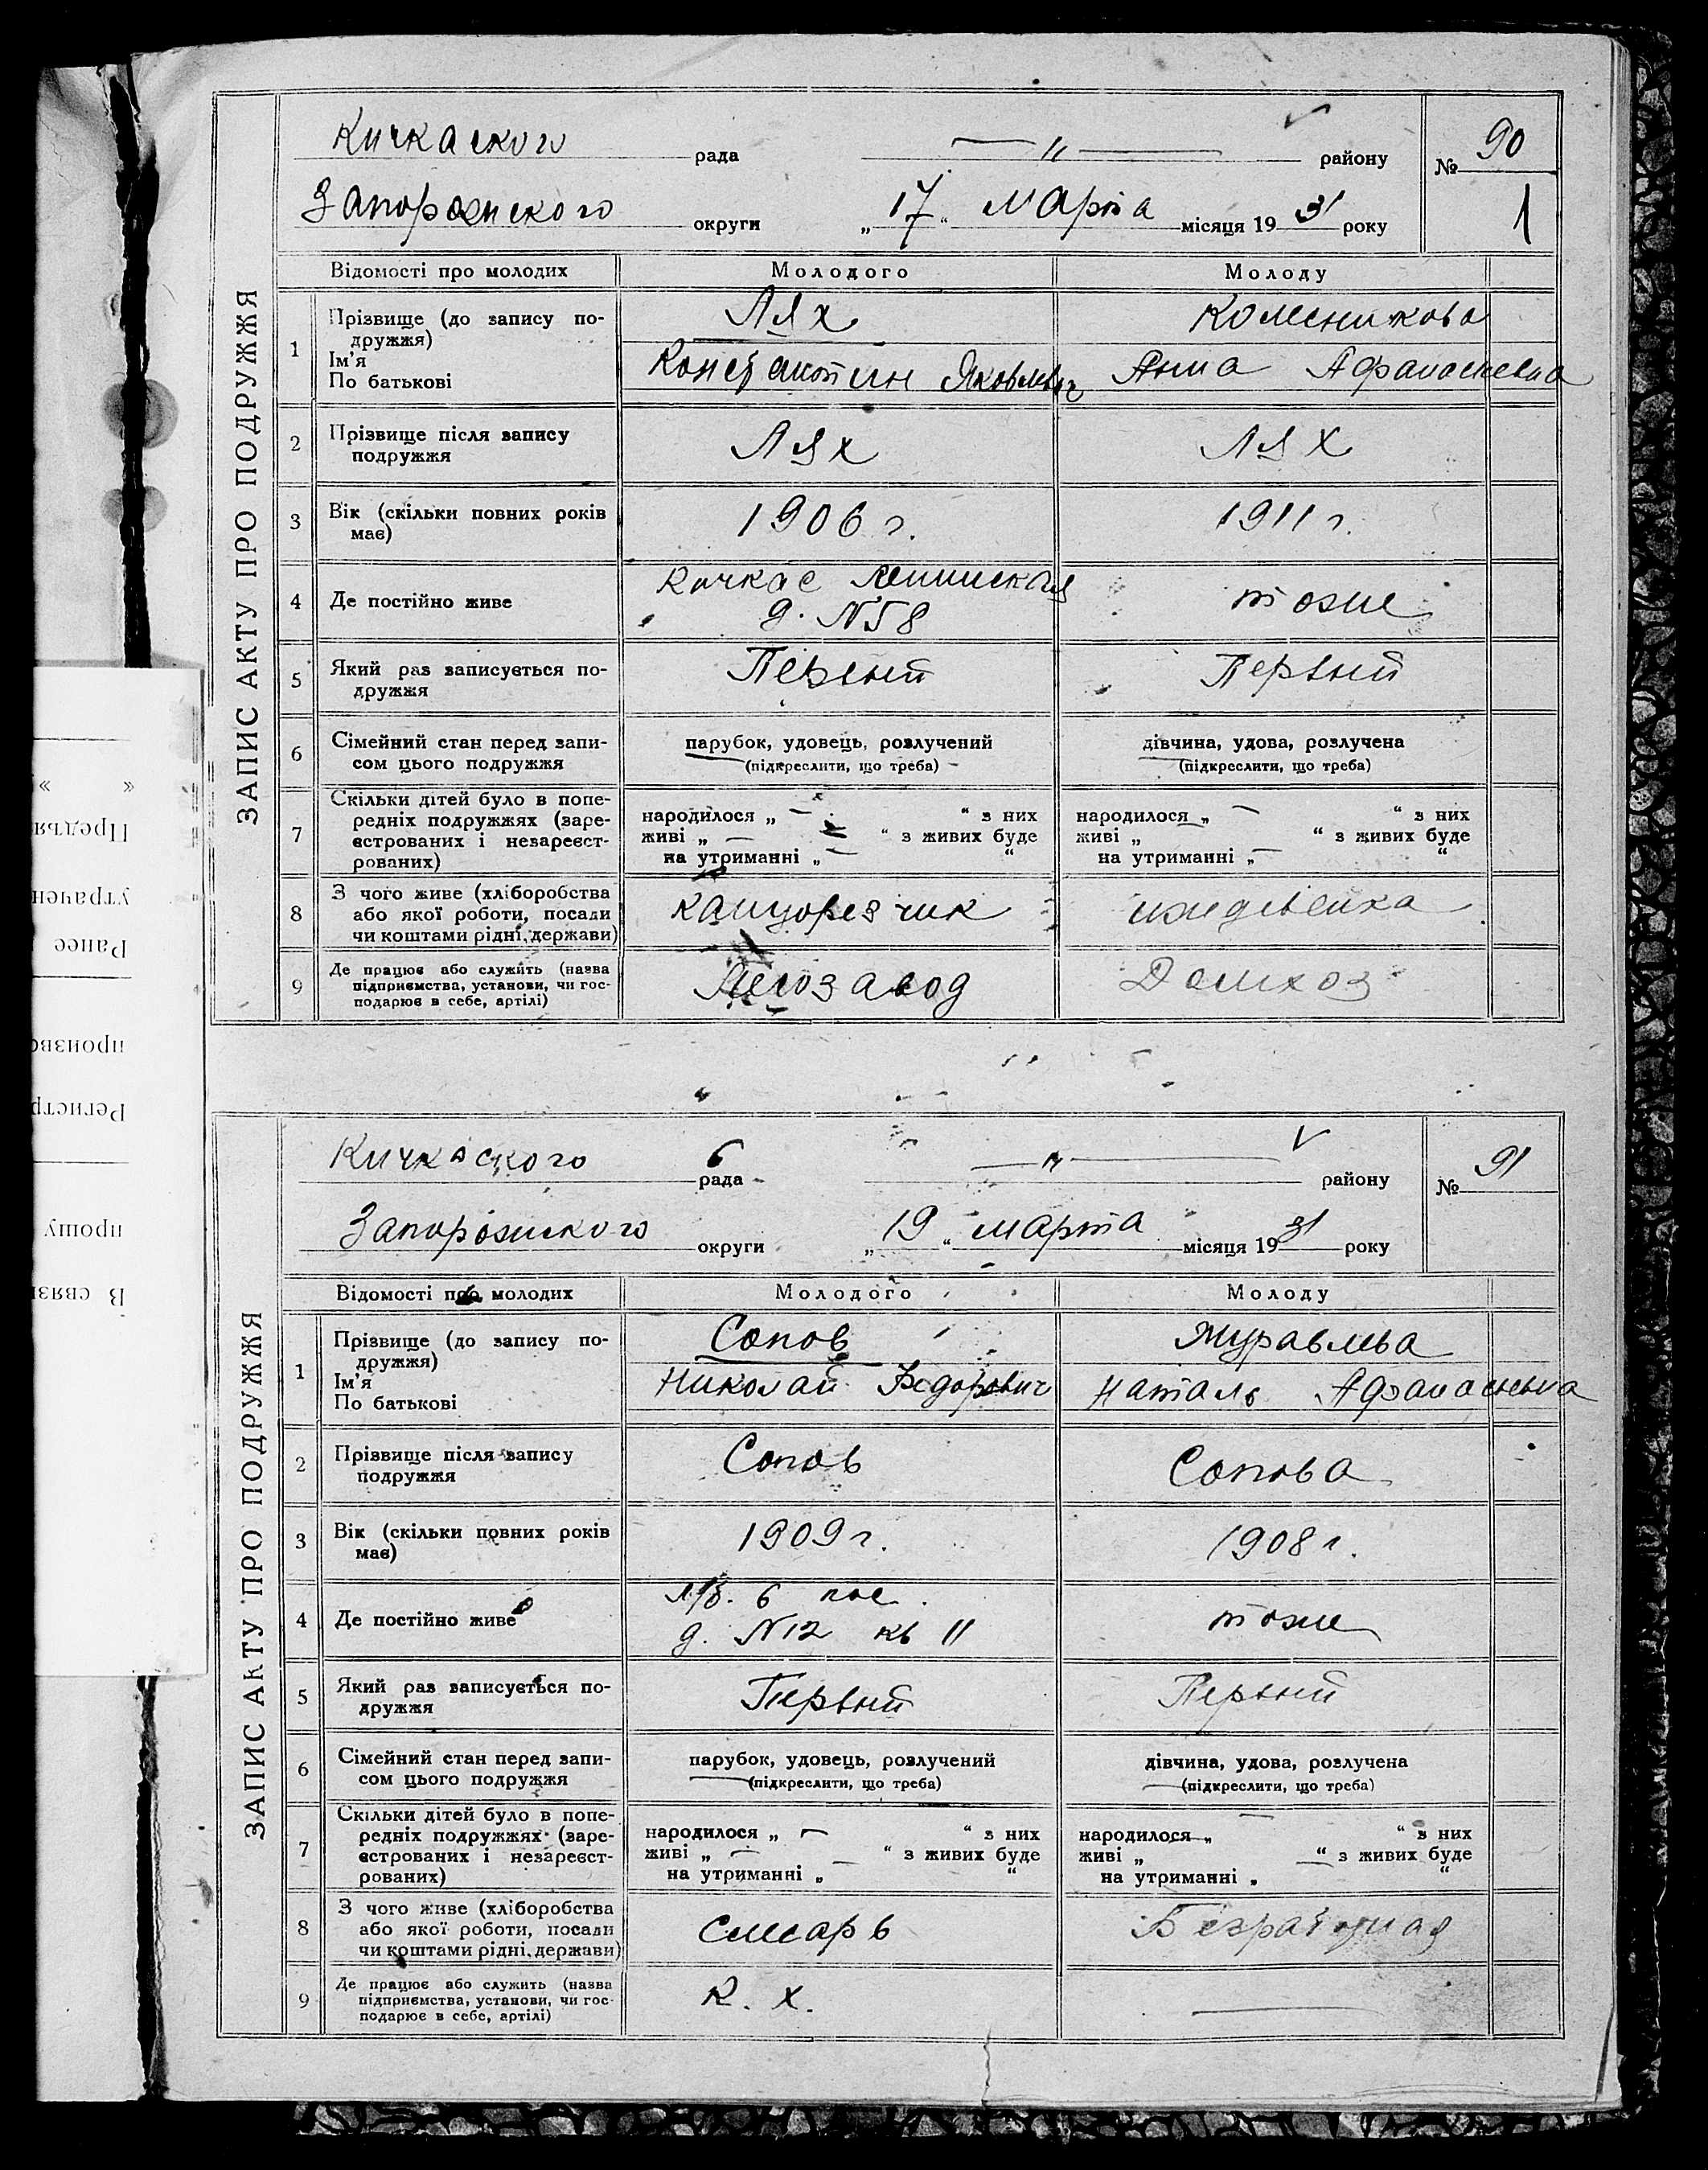 ЗАПИС АКТУ ПРО ПОДРУЖЖЯ
Кичкаского рада —"— району № 90
Запорожского округи „17“ Марта місяця 1931 року 1
Відомості про молодих Молодого Молоду
1 Прізвище (до запису подружжя) Лях Колесникова
Ім'я
По батькові Константин Яковлевич Анна Афанасиевна
2 Прізвище після запису
подружжя Лях Лях
3 Вік (скільки повних років
має) 1906 г. 1911 г.
4 Де постійно живе Кичкас Ленинская
д. №58 тоже
5 Який раз записується по-
дружжя Первый Первый
6 Сімейний стан перед запи- парубок, удовець, розлучений дівчина, удова, розлучена
сом цього подружжя (підкреслити, що треба) (підкреслити, що треба)
7 Скільки дітей було в попе-
редніх подружжях (заре- народилося „ — “ з них народилося „ — “ з них
єстрованих і незареєст- живі „ — “ з живих буде живі „ — “ з живих буде
рованих) на утриманні „ — “ на утриманні „ — “
8 З чого живе (хліборобства
або якої роботи, посади
чи коштами рідні, держави) иждивенка
9 Де працює або служить (назва
підприємства, установи, чи гос-
подарює в себе, артілі) Домхоз
ЗАПИС АКТУ ПРО ПОДРУЖЖЯ
Кичкаского рада —"— району № 91
Запорожского округи „19“ марта місяця 1931 року
Відомості про молодих Молодого Молоду
1 Прізвище (до запису по-
дружжя) Сопов Муравлева
Ім'я
По батькові Николай Федорович Наталь Афанасьевна
2 Прізвище після запису
подружжя Сопов Сопова
3 Вік (скільки повних років
має) 1909 г. 1908 г.
4 Де постійно живе 6 пос.
д. №12 кв 11 тоже
5 Який раз записується по-
дружжя Первый Первый
6 Сімейний стан перед запи- парубок, удовець, розлучений дівчина, удова, розлучена
сом цього подружжя (підкреслити, що треба) (підкреслити, що треба)
7 Скільки дітей було в попе-
редніх подружжях (заре- народилося „ — “ з них народилося „ — “ з них
єстрованих і незареєст- живі „ — “ з живих буде живі „ — “ з живих буде
рованих) на утриманні „ — “ на утриманні „ “
8 З чого живе (хліборобства
або якої роботи, посади
чи коштами рідні, держави) слесарь Безработная
9 Де працює або служить (назва
підприємства, установи, чи гос-
подарює в себе, артілі) К. Х. —
В связи
прошу
Регистр
произво
Ранее
утрачен
Предъя
« »